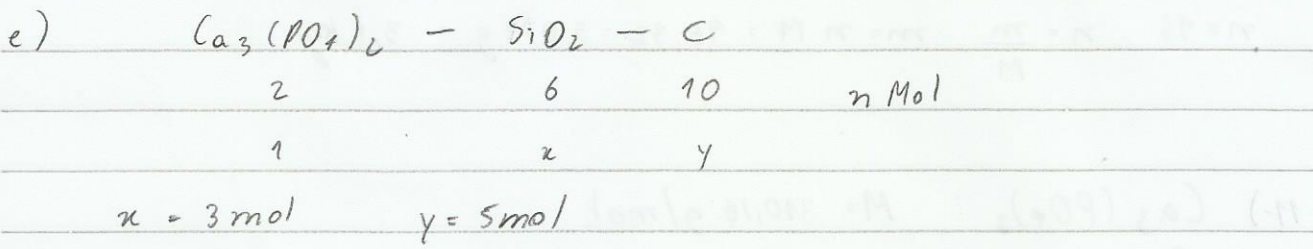 e) Ca3(PO4)2 - SiO2 - C
2 6 10 n Mol
1 x y
x = 3 mol y = 5 mol